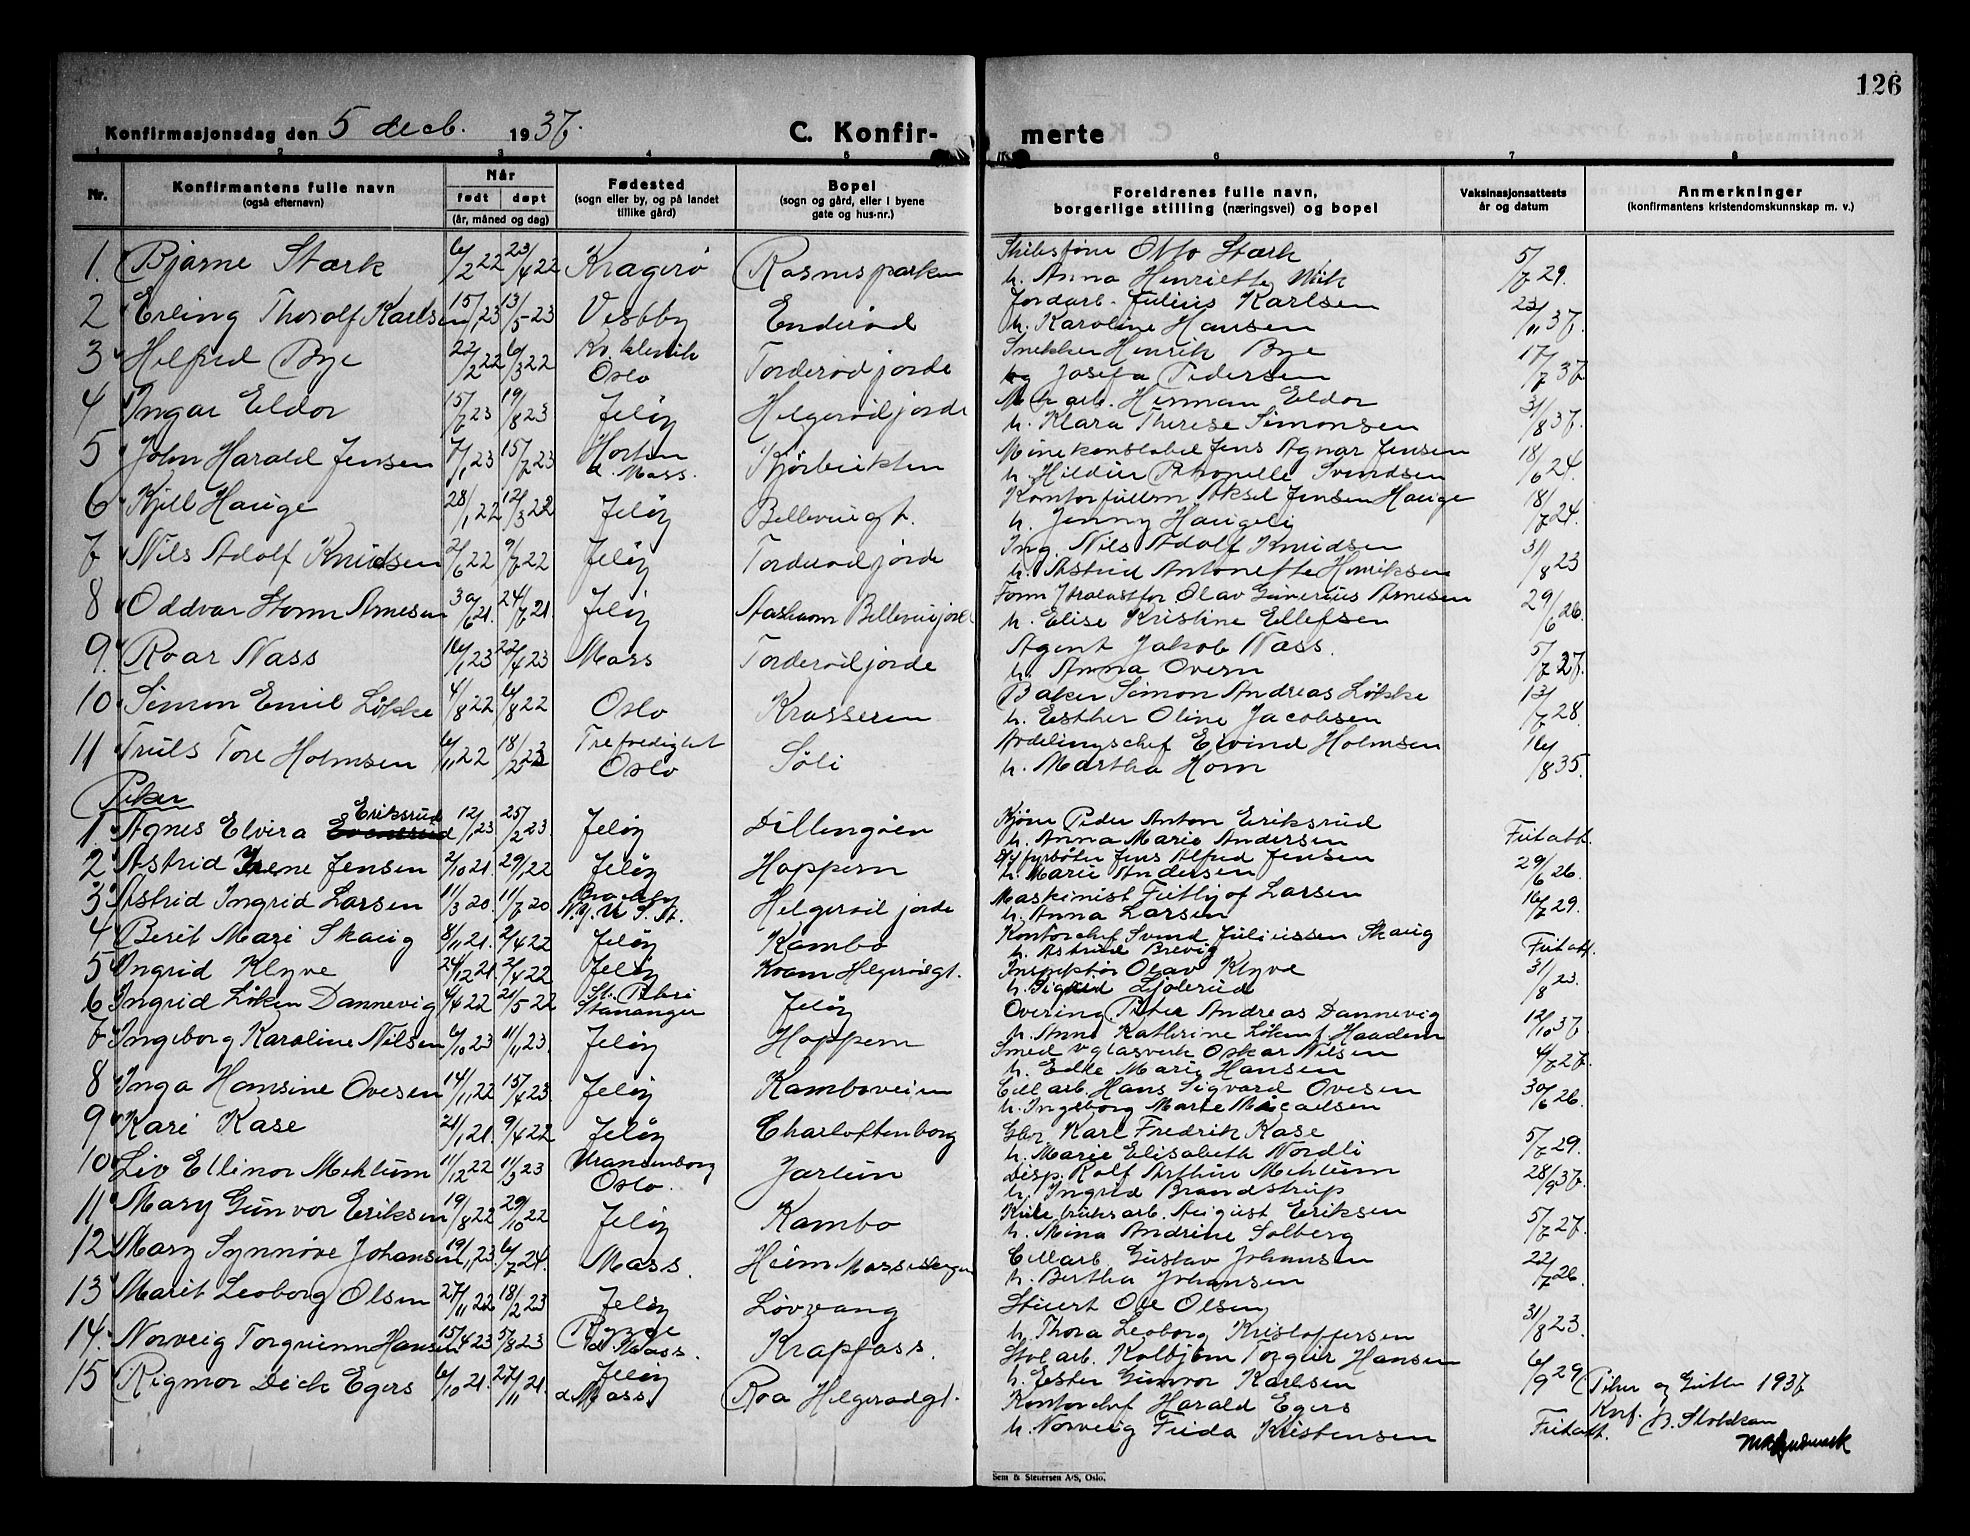 126
Konfirmasjonsdag den 5 decb. 1937.
C. Konfir-
merte
1 2 3 4 5 6 7 8
Nr.
Konfirmantens fulle navn
(også efternavn)
Når
født døpt
(år, måned og dag)
Fødested
(sogn eller by, og på landet
tillike gård)
Bopel
(sogn og gård, eller i byene
gate og hus-nr.)
Foreldrenes fulle navn,
borgerlige stilling (næringsvei) og bopel
Vaksinasjonsattests
år og datum
Anmerkninger
(konfirmantens kristendomskunnskap m. v.)
1. Bjarne Stærk 6/2 22 23/4 22 Kragerø Rosnesparken Otto Stærk
h. Anna Henriette Wiik 5/7 29.
2 Erling Thorolf Karlsen 15/1 23 13/5 23 Vestby Enderød Jordarb. Julius Karlsen
h. Karoline Hansen 23/11 37.
3 Helfred Bye 22/2 22 6/3 22 Kv. klinik Oslo Torderødjorde Snekker Henrik Bye
og Josefa Pedersen 17/7 37
4 Ingar Eldor 15/6 23 19/8 23 Jeløy Helgerødjorde Herman Eldor
h. Klara Therese Simonsen 31/8 37.
5 John Harald Jensen 7/1 23 15/7 23 Horten d. Moss. Kjørbukten Minekonstabel Jens Agnar Jensen
h. Hildur Petronelle Svendsen 18/6 24.
6 Kjell Hauge 28/1 22 12/3 22 Jeløy Bellevuegt. Kontorfullm Aksel Jensen Hauge
h. Jenny Haugeli 18/7 24.
7 Nils Adolf Knudsen 2/6 22 9/7 22 Jeløy Torderødjorde Ing. Nils Adolf Knudsen
h. Astrid Antonette Henriksen 31/8 23
8 Oddvar Storm Arnesen 30/6 21. 24/7 21. Jeløy Aasheim Bellevuejorde Olav Gunerius Arnesen
h. Elise Kristine Ellefsen 29/6 26.
9. Roar Næss 16/1 23 22/4 23 Moss Torderødjorde Agent Jakob Næss.
h. Anna Overn 5/7 27.
10 Simon Emil Løkke 4/8 22 6/8 22 Oslo Krosseren Baker Simon Andreas Løkke
h. Esther Oline Jacobsen 12/7 28.
11 Truls Tore Holmsen 6/11 22 18/2 23 Trefoldighet Oslo Soli Avdelingschef Eivind Holmsen
h. Martha Horn 16/8 35.
Piker
1. Agnes Elvira Eriksrud 12/1 23 25/2 23. Jeløy Dillingøen Kjører Peder Anton Eriksrud
h. Anna Marie Andersen Frit att.
2 Astrid Irene Jensen 2/10 21. 29/1 22 Jeløy Hoppern fyrbøter Jens Alfred Jensen
h. Marie Andersen 29/6 26.
3 Astrid Ingrid Larsen 11/3 20. 11/7 20 Brooklyn N.Y. U.S.A. Helgerødjorde Maskinist Fritjof Larsen
h. Anna Larsen 16/7 29.
4 Berit Mari Skaug 8/11 21. 2/4 22 Jeløy Kambo Kontorchef Svend Juliussen Skaug
h. Astrid Brevig Frit att.
5 Ingrid Klyve 24/12 21 2/4 22 Jeløy Kvam Helgerødgt. Inspektør Olav Klyve
h. Sigrid Ljølerud 31/8 23.
6 Ingrid Løken Dannevig 4/4 22 21/5 22 St. Petri Stavanger Jeløy Overing. Peter Andreas Dannevig
h. Anna Kathrine Løken f. Haadem 12/10 37.
7 Ingeborg Karoline Nilsen 6/10 23 11/11 23. Jeløy Hoppern Smed v glasverk Oskar Nilsen
h. Edle Marie Hansen 4/7 27.
8 Inga Hansine Ovesen 14/11 22 15/4 23 Jeløy Kamboveien Cell arb. Hans Sigvard Ovesen
h. Ingeborg Marie Micaelsen 30/6 26.
9 Kari Kase 21/1 21. 9/4 22 Jeløy Charlottenborg Karl Fredrik Kase
h. Marie Elisabeth Nordli 5/7 29.
10 Liv Ellinor Mehlum 11/12 22 11/3 23 Uranienborg Oslo. Jarlun Disp. Rolf Arthur Mehlum
h. Ingrid Brandstrup 28/9 37.
11 Mary Gunvor Eriksen 19/8 22 29/10 22 Jeløy Kambo August Eriksen
h. Mina Andrine Solberg 5/7 27.
12 Mary Synnøve Johansen 19/11 23. 6/7 24. Moss. Heim Mosseskogen Cellarb. Gustav Johansen
h. Bertha Johansen 22/7 26.
13 Marit Leoborg Olsen 27/11 22 18/2 23 Jeløy Lövvang Stuert Ole Olsen
h. Thora Leoborg Kristoffersen 31/8 23.
14. Norveig Torgunn Hansen 15/4 23 5/8 23 Rygge d. Moss. Krapfoss. Kolbjørn Torgeir Hansen
h. Ester Gunvor Karlsen 6/9 29
15 Rigmor Dick Egers 6/10 21. 27/11 21. Jeløy d Moss. Roa Helgerødgt. Kontorchef Harald Egers
h. Norveig Frida Kristensen Frit att.
Piker og Gutter 1937
Konf.
Sem & Stenersen A/S, Oslo.